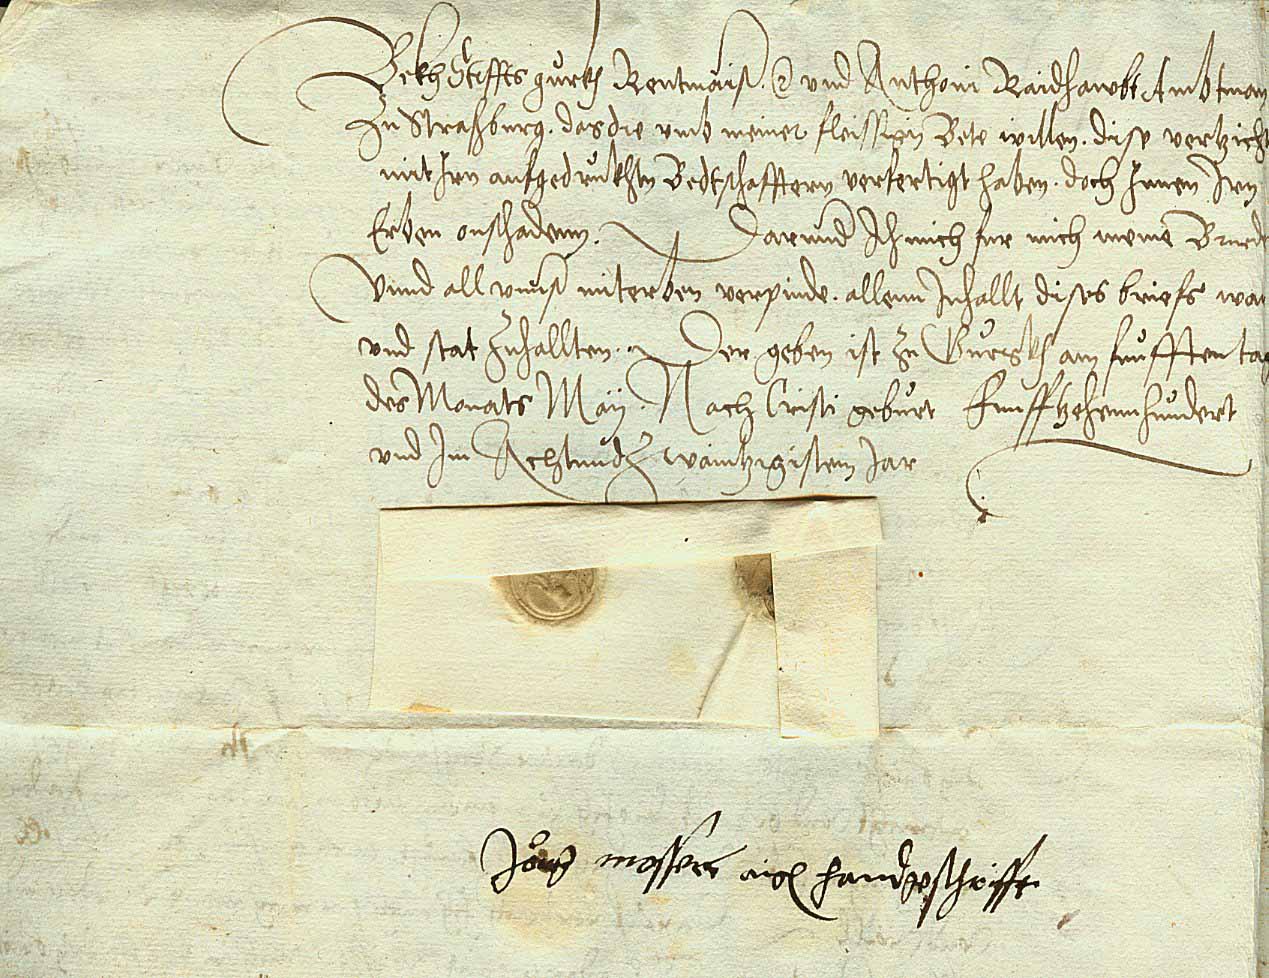 Bekh Stiffts Gurkh Rentmaister und Anthoni Raidhawbt Ambtman
Zu Straßburg. das die umb meiner fleissigen Bete willen. dise vertzicht
mit Irn aufgedrukhtn Bedtschafftern verfertigt haben. doch Innen Irn
Erben onschadenn. Darumb Ich mich fur mich meine Brued
Unnd all unnser miterben verpinde. allenn Inhallt dises briefs war
und stat zuhallten. Der geben ist zu Gurgkh am funfften tag
des Monats Maij. Nach Cristi geburt Funfftzehennhundert
und Im Achtundzwaintzigistem Jar
Jorg mosser aigen handgschrifft